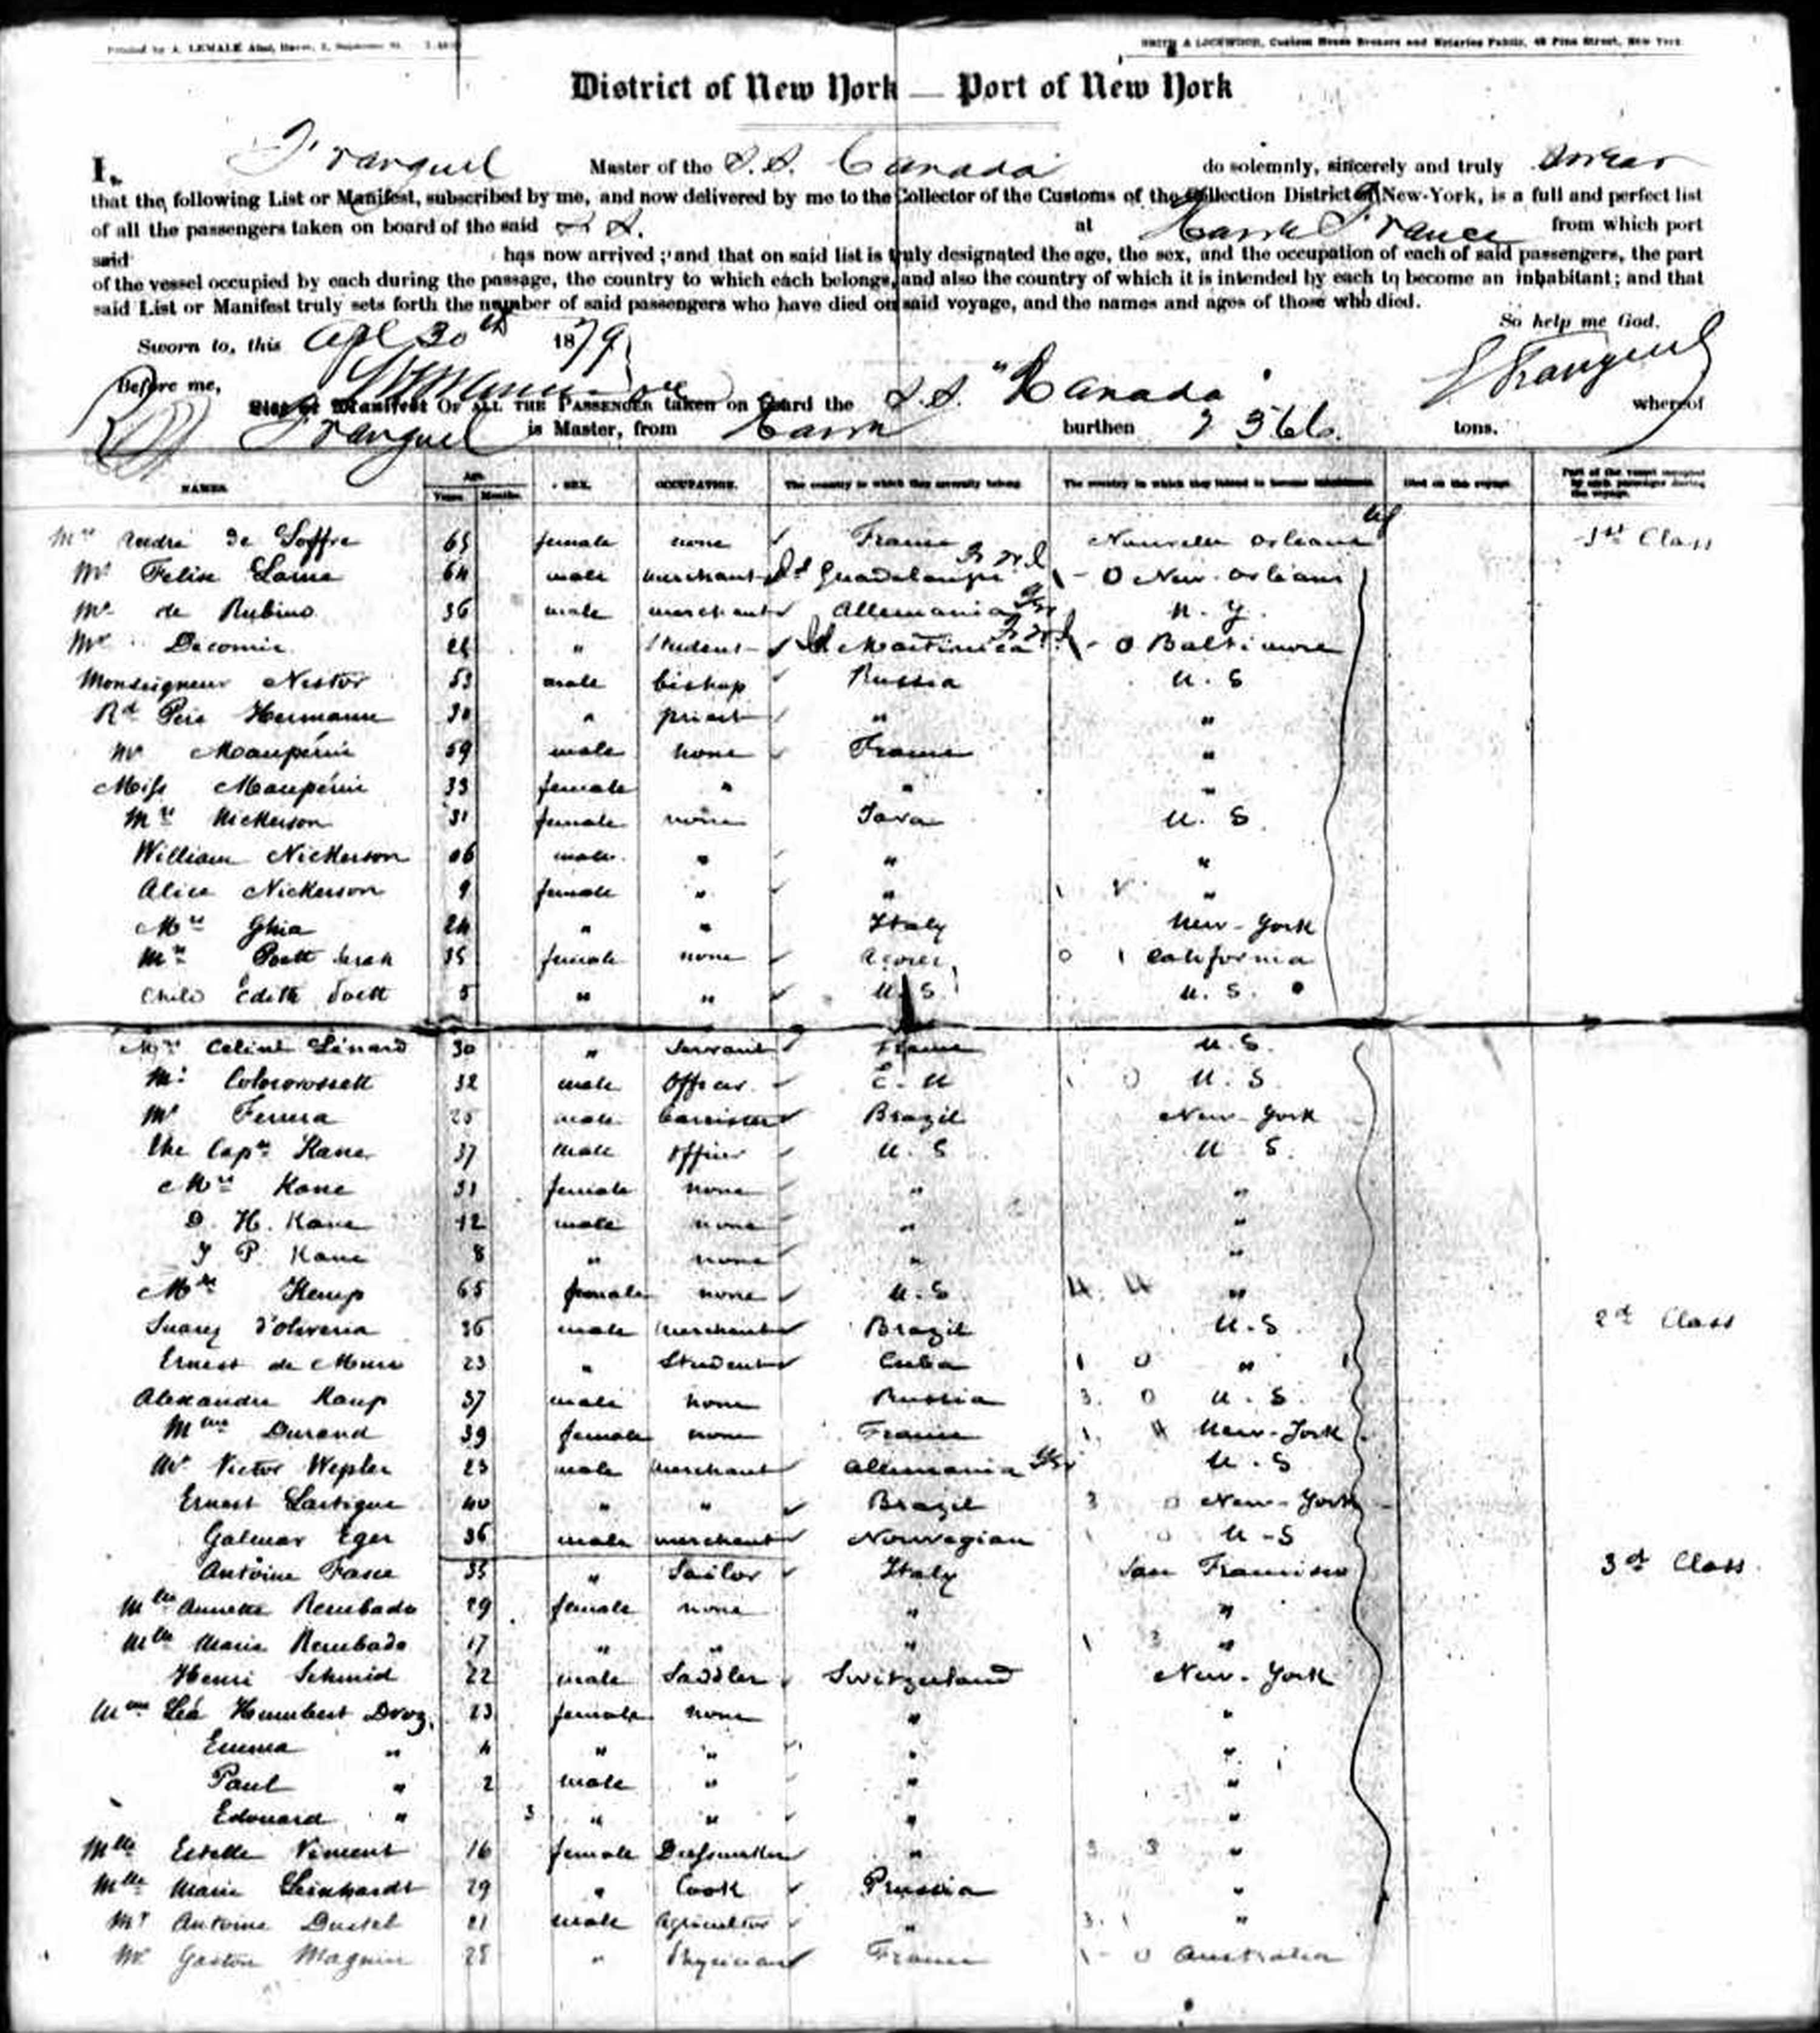 Printed by A. LEMALE Aîné, Havre,
SMITH & LOCKWOOD, Custom House Brokers and Notaries Public, 48 Pine Street, New York
District of New York — Port of New York
I, Franguel Master of the S.S. Canada do solemnly, sincerely and truly swear
that the following List or Manifest, subscribed by me, and now delivered by me to the Collector of the Customs of the Collection District of New-York, is a full and perfect list
of all the passengers taken on board of the said S.S. at Havre France from which port
said has now arrived; and that on said list is truly designated the age, the sex, and the occupation of each of said passengers, the part
of the vessel occupied by each during the passage, the country to which each belongs, and also the country of which it is intended by each to become an inhabitant; and that
said List or Manifest truly sets forth the number of said passengers who have died on said voyage, and the names and ages of those who died.
So help me God.
Sworn to, this Apl 30th 1879
Before me,
Franguel
List or Manifest OF ALL THE PASSENGER taken on board the S.S. "Canada" whereof
Franguel is Master, from Havre burthen tons.
NAMES. Age. Years. Months. SEX. OCCUPATION. The country to which they severally belong. The country to which they intend to become inhabitants. Died on the voyage. Part of the vessel occupied by each passenger during the voyage.
André de Soffre 65 female none France Nouvelle Orleans 1st Class
Mr Felise 64 male merchant Guadeloupe New-Orleans
Mr de Rubino 36 male merchant Allemania N. Y.
Mr Decomis " Student Martinica Baltimore
Monseigneur Nestor 53 male bishop Russia U. S
Rd Père Hermann 30 " priest " "
Mr Maupérin 59 male none France "
Miss Maupérin 33 female " " "
Mrs Nickerson 31 female none Java U. S.
William Nickerson 06 male " " "
Alice Nickerson 9 female " " "
Ghia 24 " " Italy New-York
35 female none California
Child Edith 5 " " U.S. U. S.
Celine Lénard 30 " Servant France U.S.
Mr 32 male Officer E. U U. S
Mr 25 male barrister Brazil New-York
the Capn Kane 37 male officer U. S U S.
Mrs Kane 31 female none " "
D. H. Kane 12 male none " "
J P. Kane 8 " none " "
Kemp 65 female none U.S "
Suarez d'Oliveria 36 male Merchant Brazil U.S 2d Class
Ernest de 23 " Student Cuba "
Alexandre Kaup 37 male none Russia U. S.
Mme Durand 39 female none France New-York
Mr Victor Wepler 23 male Merchant Allemania U. S
Ernest Lartigue 40 " " Brazil New-York
Galmar Eger 36 male merchant Norwegian U-S
Antoine 35 " Sailor Italy San Francisco 3d Class
Mlle Annette Rembado 29 female none " "
Mlle Maria Rembado 17 " " " "
Henri Schmid 22 male Saddler Switzerland New-York
Mme Léa Humbert Droz 23 female none " "
Emma " 4 " " " "
Paul " 2 male " " "
Edouard " 3 " " " "
Mlle Estelle Vincent 16 female Dressmaker " "
Mlle Marie Leinhardt 29 " Cook Prussia "
Mr Antoine 21 male Agricultor " "
Mr Gaston Magnin 28 " Physician France Australia